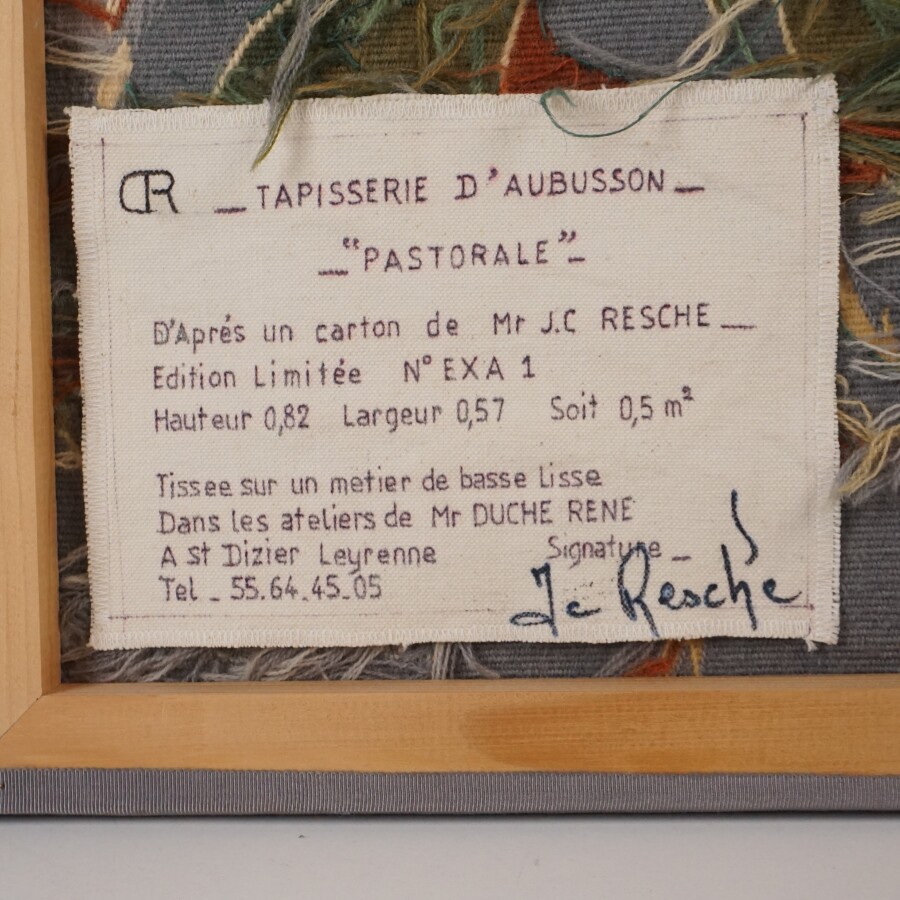 DR _ TAPISSERIE D'AUBUSSON _
_ "PASTORALE" _
D'Aprés un carton de Mr J.C RESCHE _
Edition Limitée N° EXA 1
Hauteur 0,82 Largeur 0,57 Soit 0,5 m²
Tissee sur un metier de basse Lisse
Dans les ateliers de Mr DUCHE RENE
A st Dizier Leyrenne Signature _
Tel _ 55.64.45.05
Jc Resche